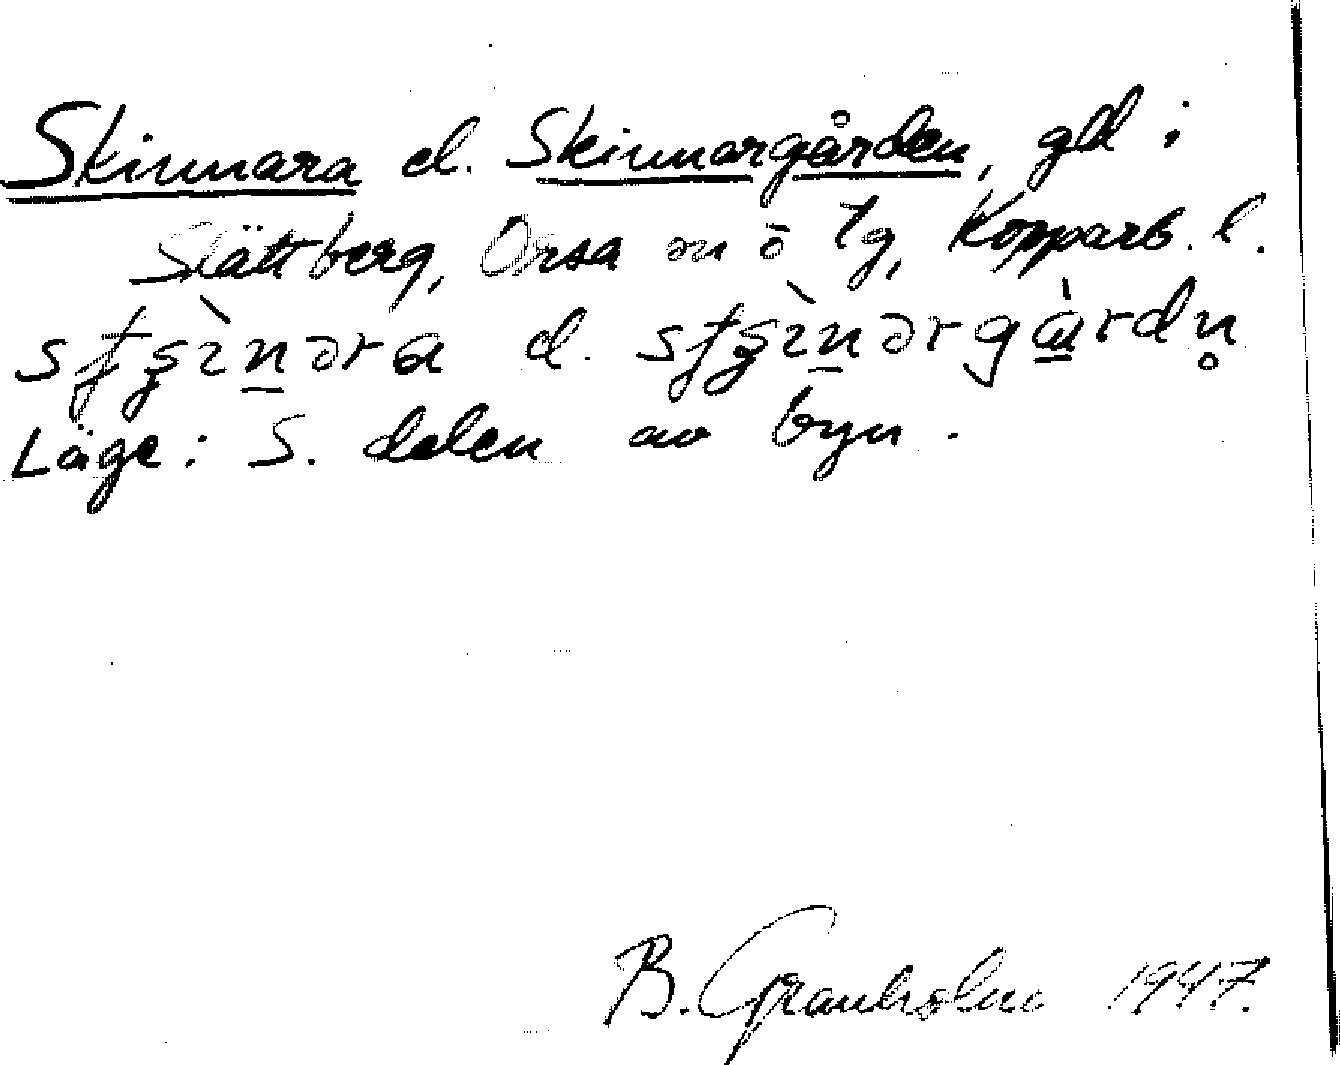 Skinnara el. Skinnargården, gd i
Slättberg, Orsa sn o tg, Kopparb. l.
el.
Läge: S. delen av byn.
B. Granholm 1947.